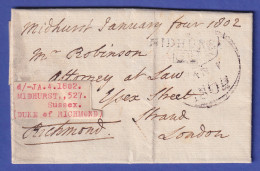 Midhurst January four 1802
MIDHURST
Mr Robinson
Attorney at Law
Essex Street
Strand
London
Richmond
#/-JA.4.1802.
MIDHURST,.527.
Sussex.
(DUKE of RICHMOND)